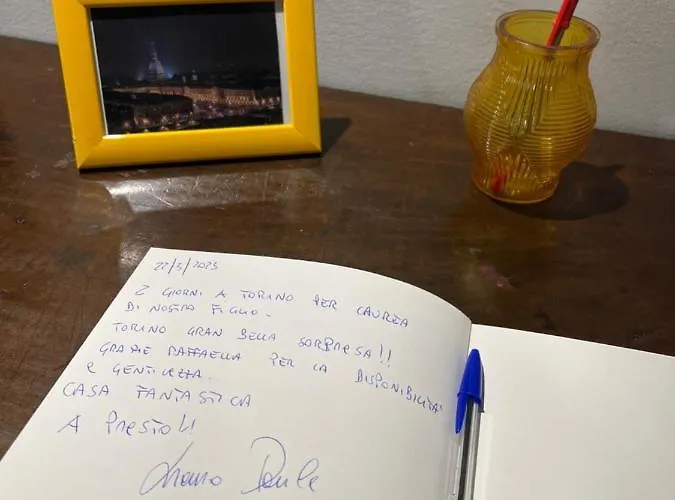 22/3/2023
2 GIORNI A TORINO PER LAUREA
DI NOSTRO FIGLIO.
TORINO GRAN BELLA SORPRESA!!
GRAZIE RAFFAELLA PER LA DISPONIBILITÀ
E GENTILEZZA.
CASA FANTASTICA
A PRESTO!!